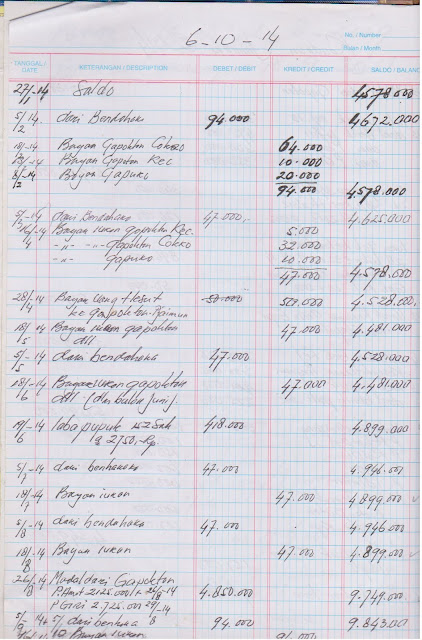 6-10-14
No. / Number
Bulan / Month
TANGGAL / DATE KETERANGAN / DESCRIPTION DEBET / DEBIT KREDIT / CREDIT SALDO / BALANC
27/1-14 Saldo 4578.000
5/2 14. dari Bendahara 94.000 4672.000
18/-14 Bayar Gapoktan Cokro 64.000
18/-14 Bayar Gapoktan Kec 10.000
18/2-14 Bayar Gapuro 20.000
94.000 4.578.000
5/-14 dari bendahara 47.000,- 4.625.000
16/4-14 Bayar iuran gapoktan Kec. 5.000
-"- -"- Gapoktan Cokro 32.000
-"- gapuro 10.000
47.000 4.578.000
28/4-14 Bayar uang 50.000 4.528.000.
ke gapoktan
18/5-14 Bayar iuran gapoktan 47.000 4.481.000
dll
5/5-14 dari bendahara 47.000. 4.528.000
18/6-14 Bayar iuran gapoktan 47.000 4.481.000
dll
19/6-14 laba pupuk 152 Sak 418.000 4.899.000
a 2750,-Rp
5/7-14 dari 47.000. 4.946.000
18/7-14 Bayar iuran 47.000. 4899.000
5/8-14 dari bendahara 47.000. 4.946.000
18/8-14 Bayar iuran 47.000 4.899.000
26/8-14 Modal dari Gapoktan
2.125.000 26/8-14 4.850.000 9.749.000
2.725.000 29/8-14
dari bendahara 94.000 9.843.000
Bayar iuran